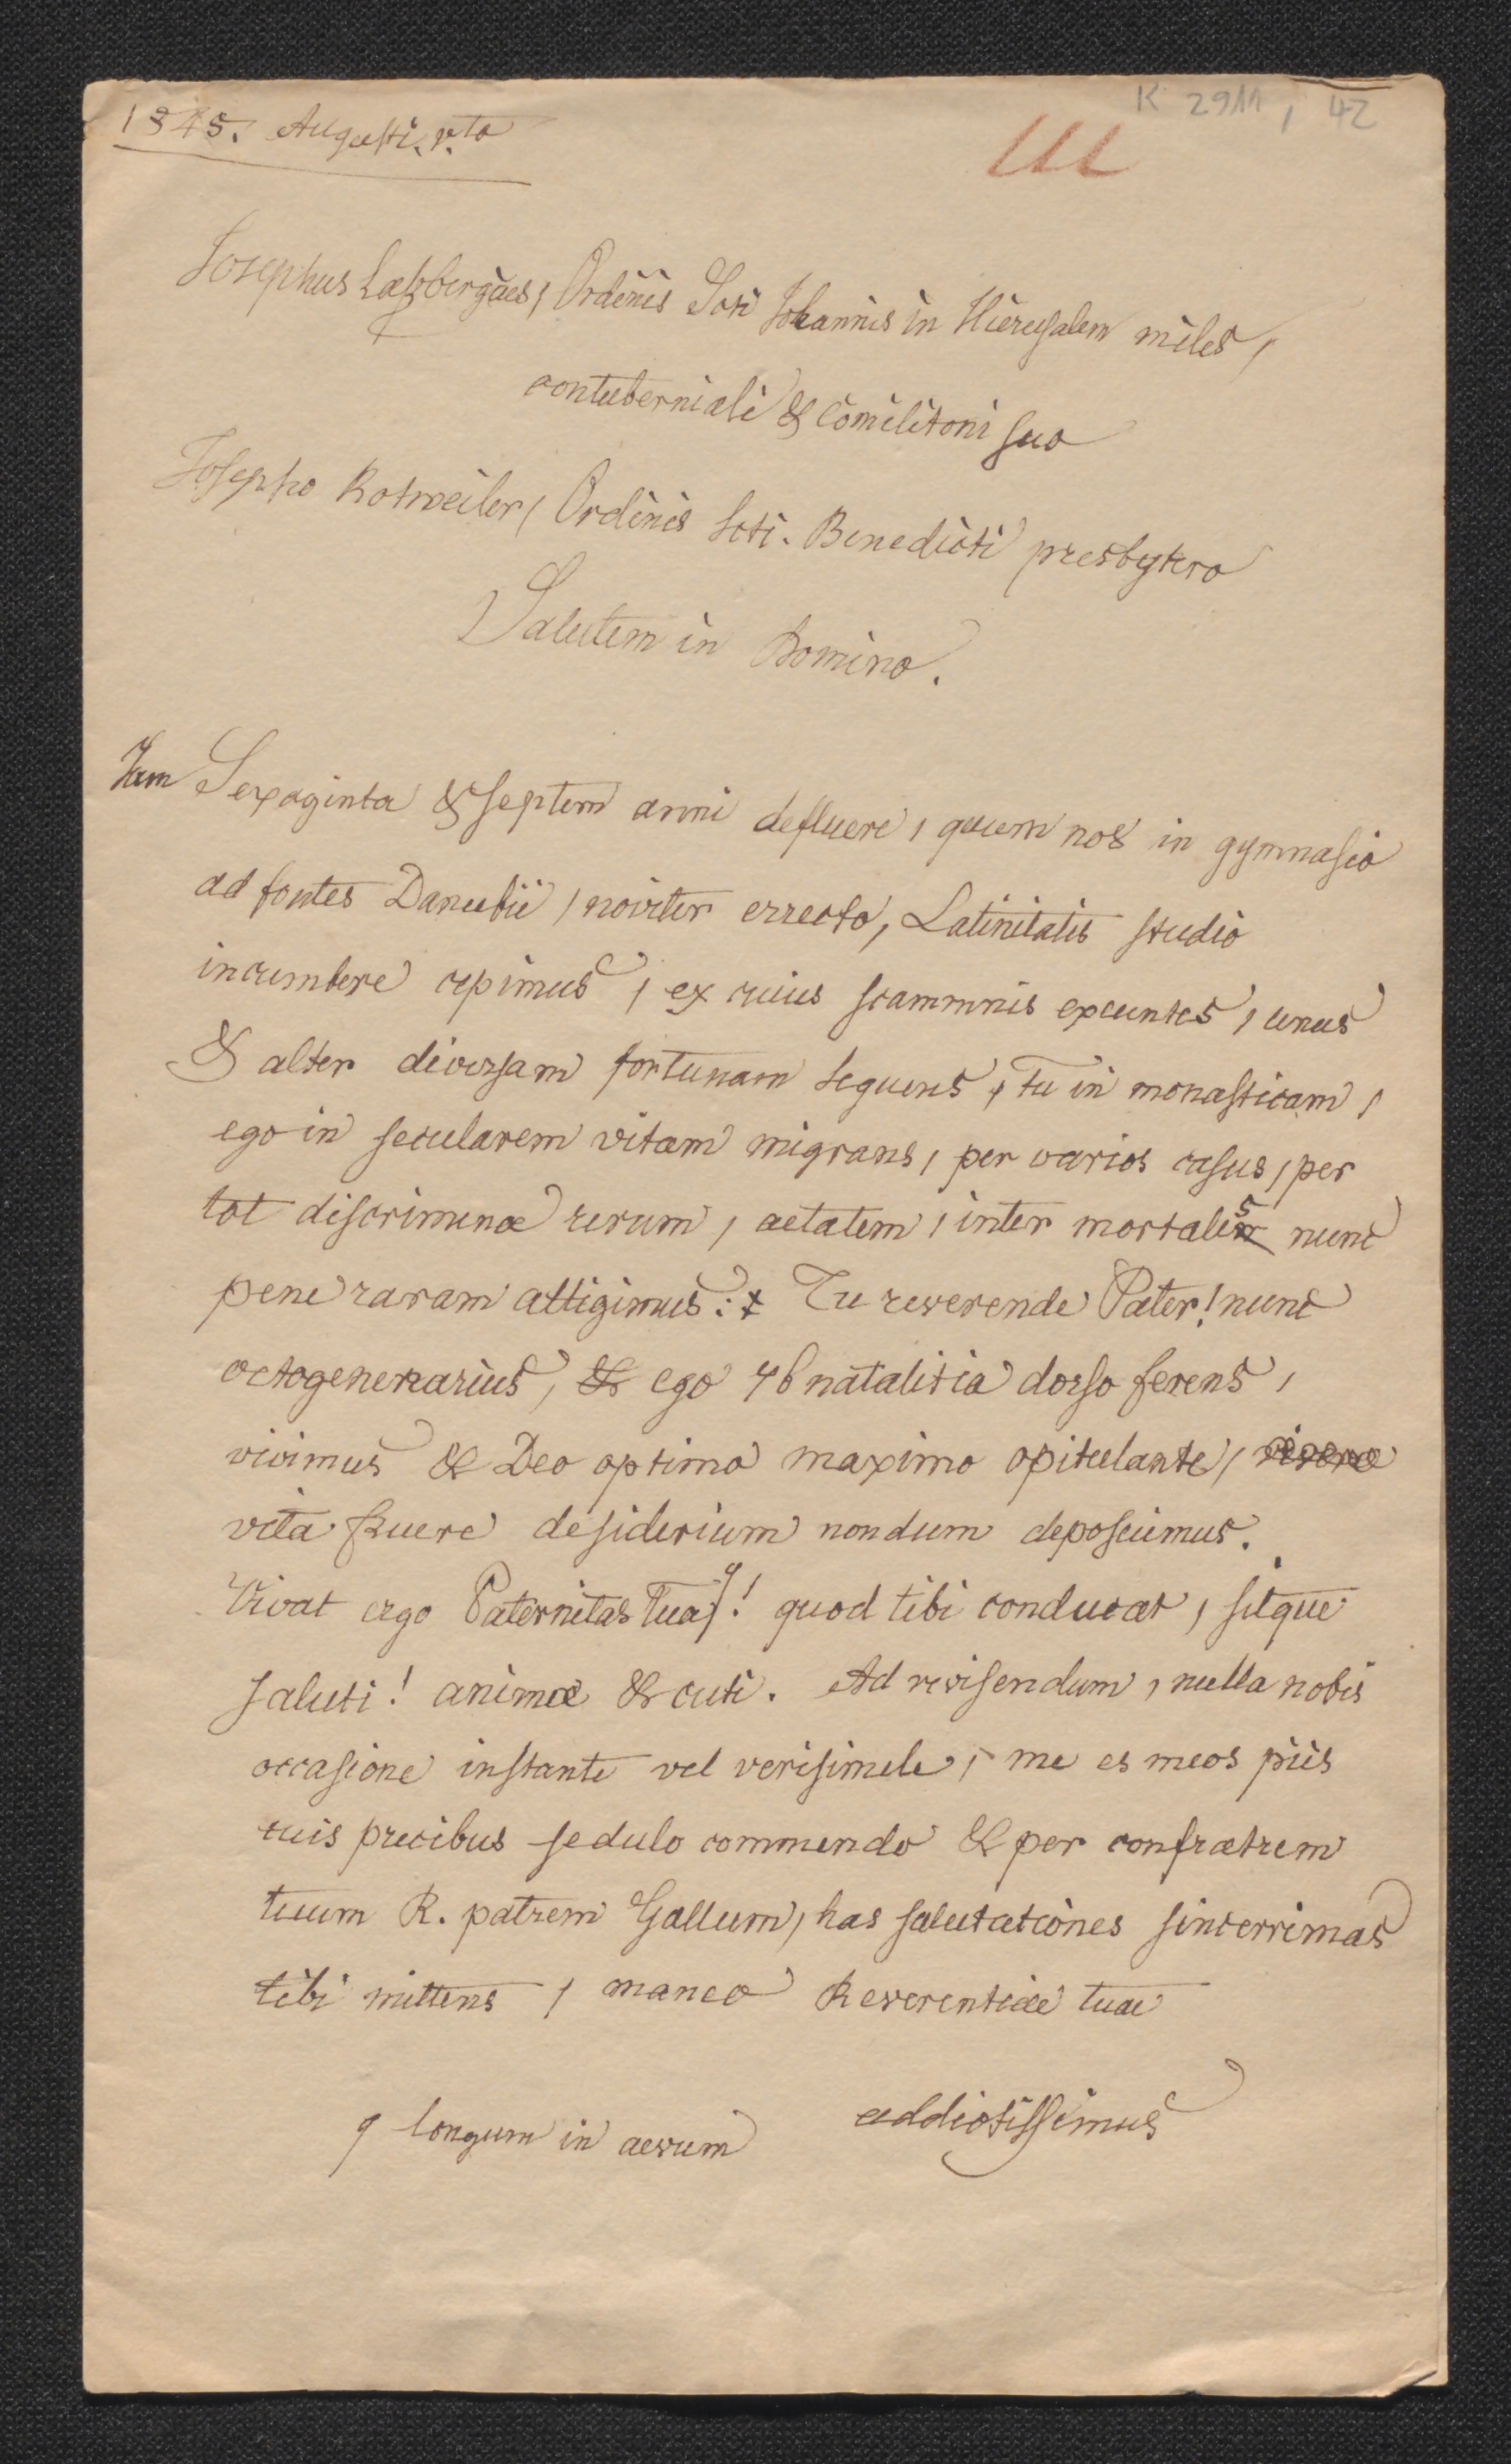 K 2911, 42
1845. Augusti. 9.to
III
Josephus Laßbergius, Ordinis Scti Johannis in Hierusalem miles,
contuberniali & comilitoni suo
Josepho Rotweiler, Ordinis Scti. Benedicti presbytero
Salutem in Domino.
Jam Sexaginta & septem anni defluere, quum nos in gymnasio
ad fontes Danubii, noviter errecto, Latinitatis studio
incumbere cepimus, ex cuius scammnis exeuntes, unus
& alter diversam fortunam sequens, tu in monasticam,
ego in secularem vitam migrans, per varios casus, per
tot discrimina rerum, aetatem, inter mortales nunc
pene raram attigimus: Tu reverende Pater! nunc
octogenerarius, & ego 76 natalitia dorso ferens,
vivimus & Deo optimo maximo opitulante, vivere
vita fruere desiderium nondum deposuimus.
Vivat ergo Paternitas Tua q! quod tibi conducat, sitque
saluti! animæ & cuti. Ad revisendum, nulla nobis
occasione instante vel verisimile, me es meos piis
tuis precibus sedulo commendo & per confratrem
tuum R. patrem Gallum, has salutationes sincerrimas
tibi mittens, maneo Reverentiae tuae
addictissimus
q longum in aevum